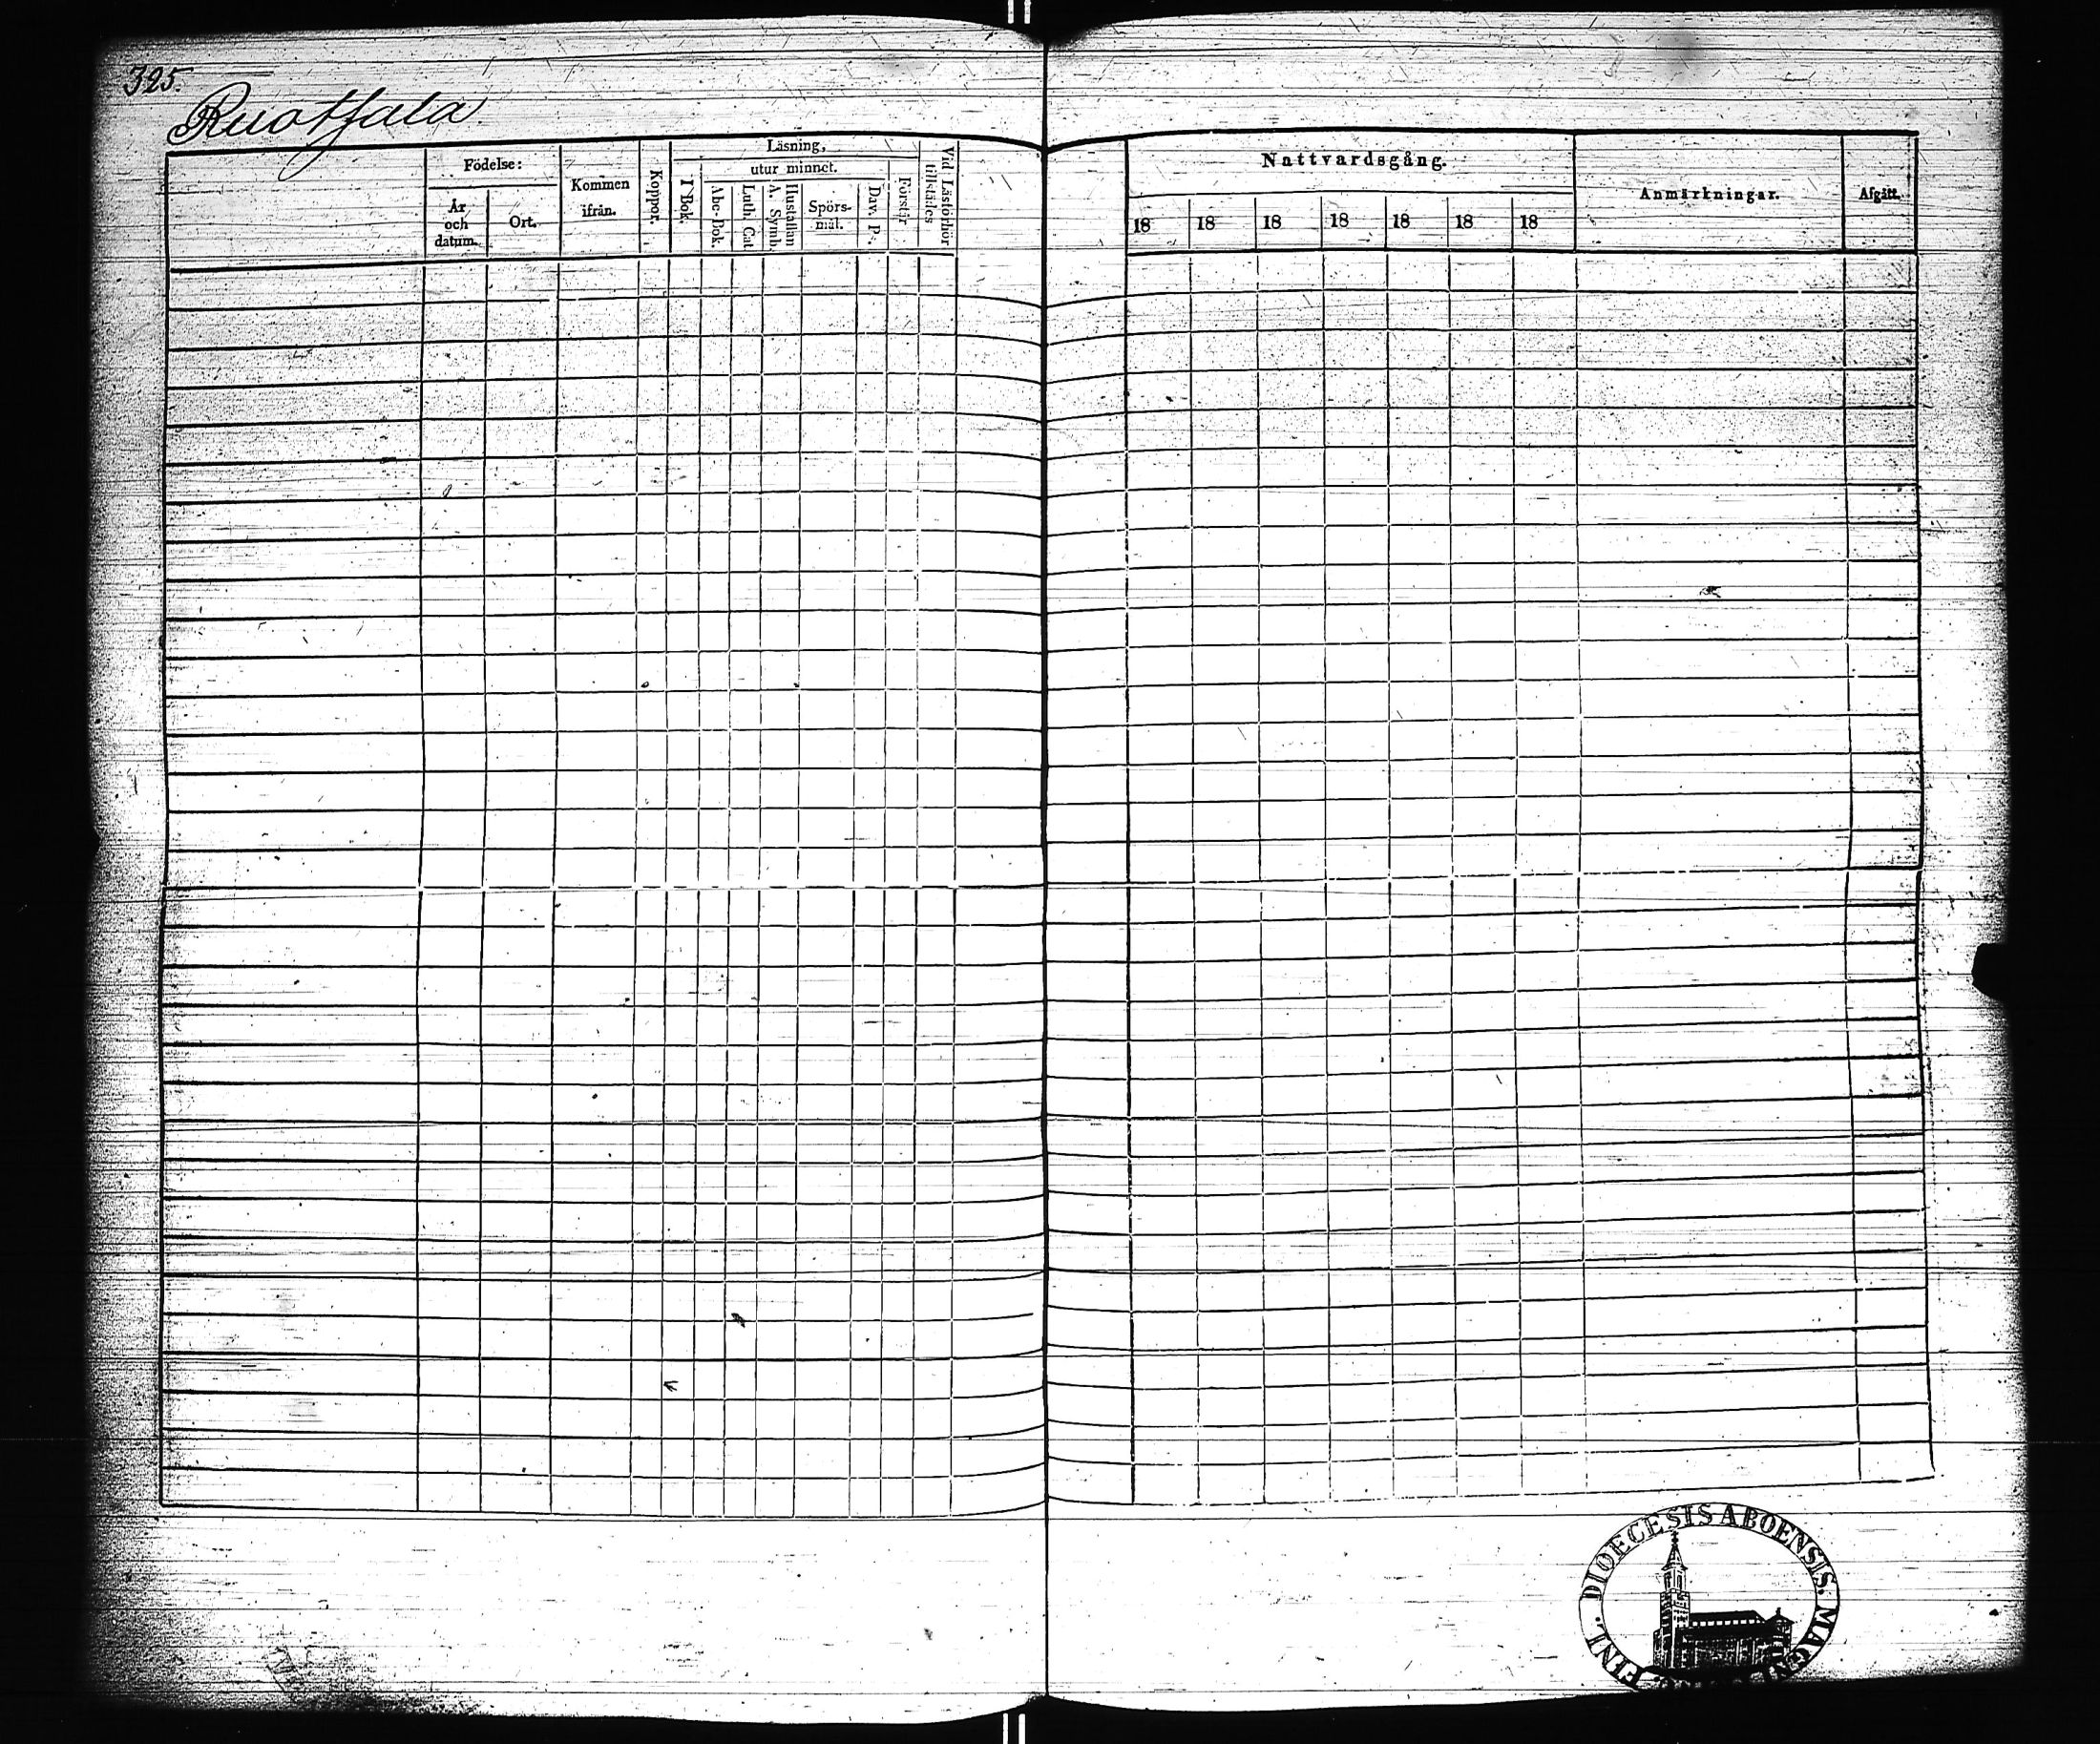 325.
Ruotsala
Födelse:
År och datum.
Ort.
Kommen ifrån.
Koppor.
Läsning,
I Bok.
utur minnet.
Abc-Bok.
Luth. Cat.
Hustaflan A. Symb.
Spörsmål.
Dav. Ps.
Förstår
Vid Läsförhör tillstädes
Nattvardsgång.
18 18 18 18 18 18 18
Anmärkningar.
Afgått.
DIOECESIS ABOENSIS. MAGNI
FINL.